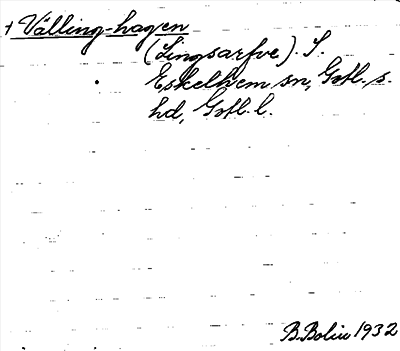 † Välling-hagen
(Lingsarfve). S.
Eskelhem sn, Gotl. s.
hd, Gotl. l.
B. Bolin 1932